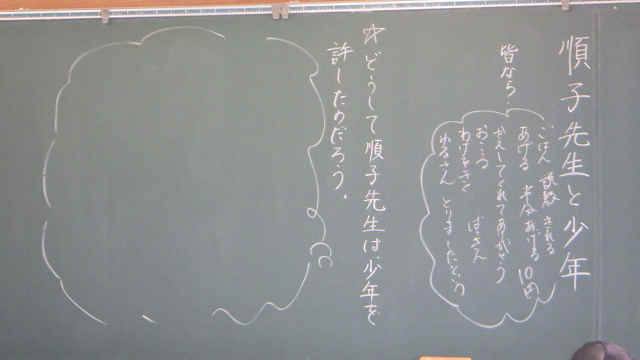 順子先生と少年
皆なら・
ごはん される
あげる 半分あげる 10円
かえしてくれてありがとう
おこる ばさん
わけをきく
ゆるさん とりましたという
☆どうして順子先生は、少年を
許したのだろう。